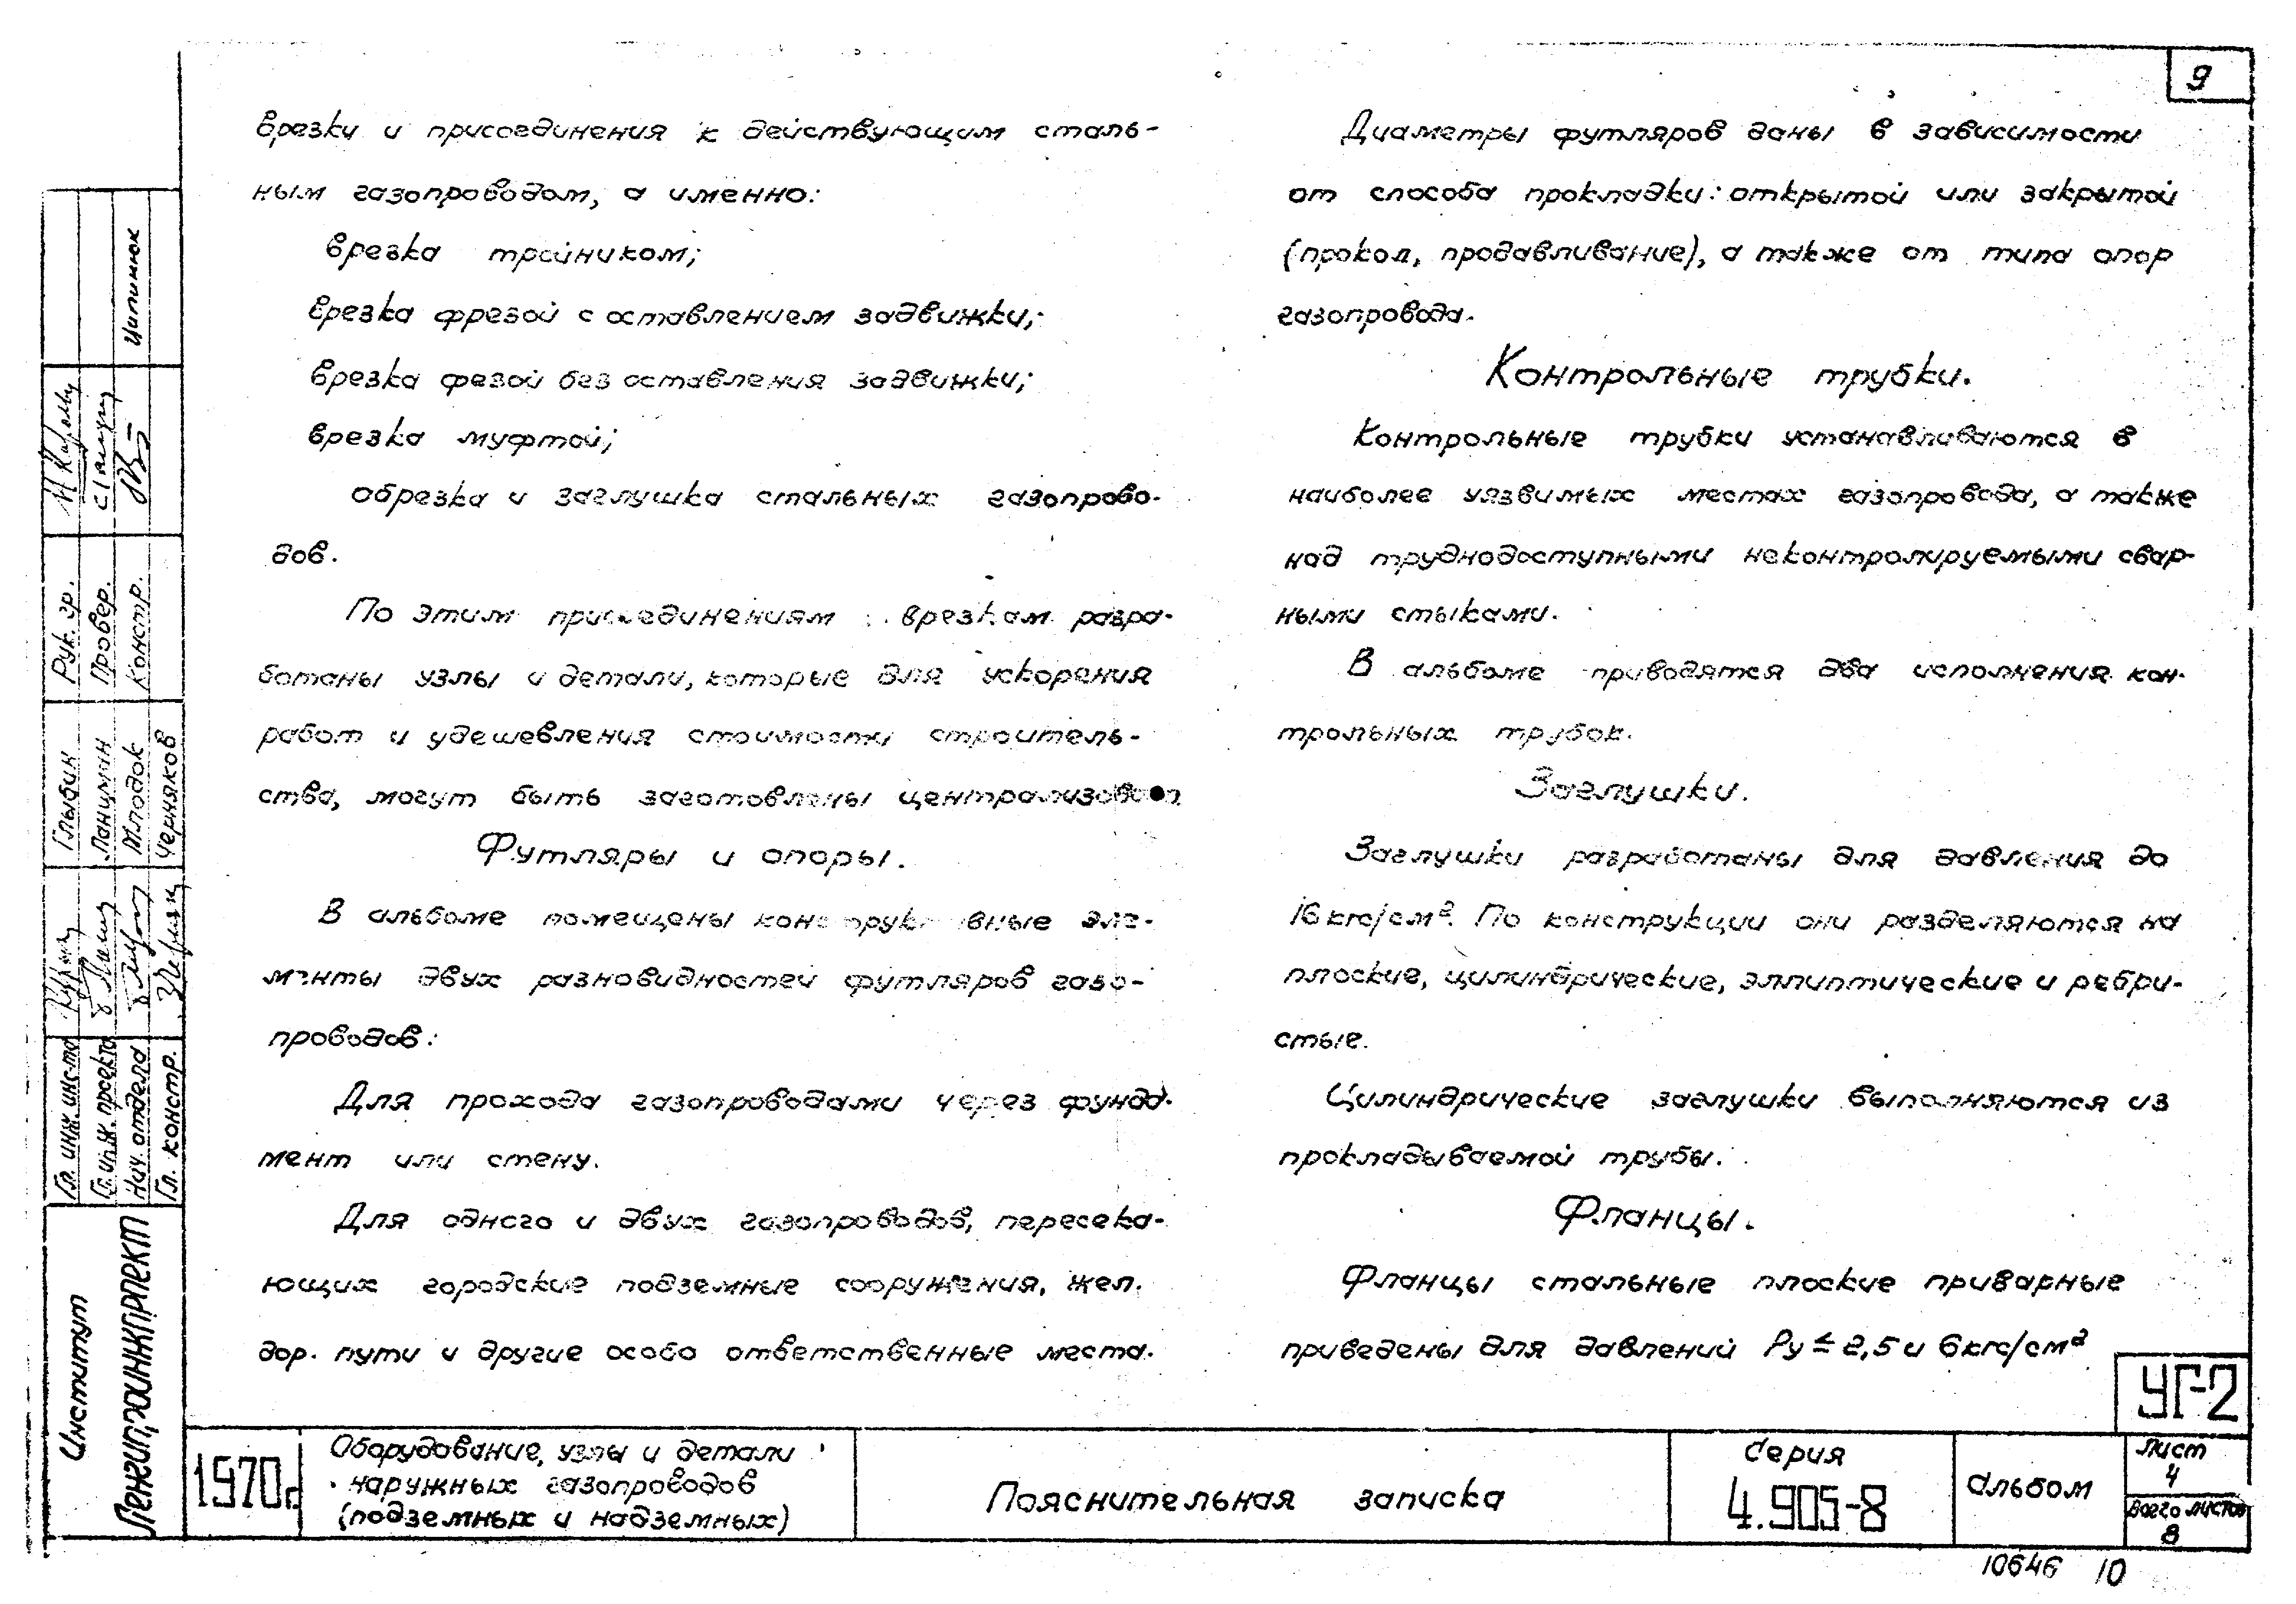 9
врезки и присоединения к действующим сталь-
ным газопроводам, а именно:
врезка тройником;
врезка фрезой с оставлением задвижки;
врезка фезой без оставления задвижки;
врезка муфтой;
обрезка и заглушка стальных газопрово-
дов.
По этим присоединениям врезкам разра-
ботаны узлы и детали, которые для ускорения
работ и удешевления стоимости строитель-
ства, могут быть заготовлены
Футляры и опоры.
В альбоме помещены эле-
менты двух разновидностей футляров газо-
проводов:
Для прохода газопроводами через фунда-
мент или стену.
Для одного и двух газопроводов, пересека-
ющих городские подземные сооружения, жел.
дор. пути и другие особо ответственные места.
Диаметры футляров даны в зависимости
от способа прокладки: открытой или закрытой
(прокол, продавливание), а также от типа опор
газопровода.
Контрольные трубки.
Контрольные трубки устанавливаются в
наиболее уязвимых местах газопровода, а также
над труднодоступными неконтролируемыми свар-
ными стыками.
В альбоме приводятся два исполнения кон-
трольных трубок.
Заглушки.
Заглушки разработаны для давления до
16 кгс/см². По конструкции они разделяются на
плоские, цилиндрические, эллиптические и ребри-
стые.
Цилиндрические заглушки выполняются из
прокладываемой трубы.
Фланцы.
Фланцы стальные плоские приварные
приведены для давлений Ру ≤ 2,5 и 6 кгс/см²
УГ-2
1970г.
Оборудование, узлы и детали
наружных газопроводов
(подземных и надземных)
Пояснительная записка
Серия
4.905-8
Альбом
лист
4
всего листов
8
10646 10
Институт
Ленгипроинжпроект
Гл. инж. инс-та
Гл. инж. проекта
Нач. отдела
Гл. констр.
Глыбин
Ланцман
Млодок
Черняков
Рук. гр.
Провер.
Констр.
Ципинюк